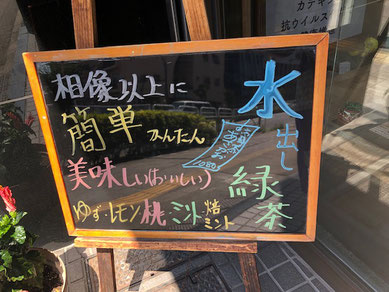 カテキ
抗ウイルス
水出し
緑茶
想像以上に
簡単かんたん
美味しい(おいしい)
ゆず・レモン 桃 ミント 焙ミント